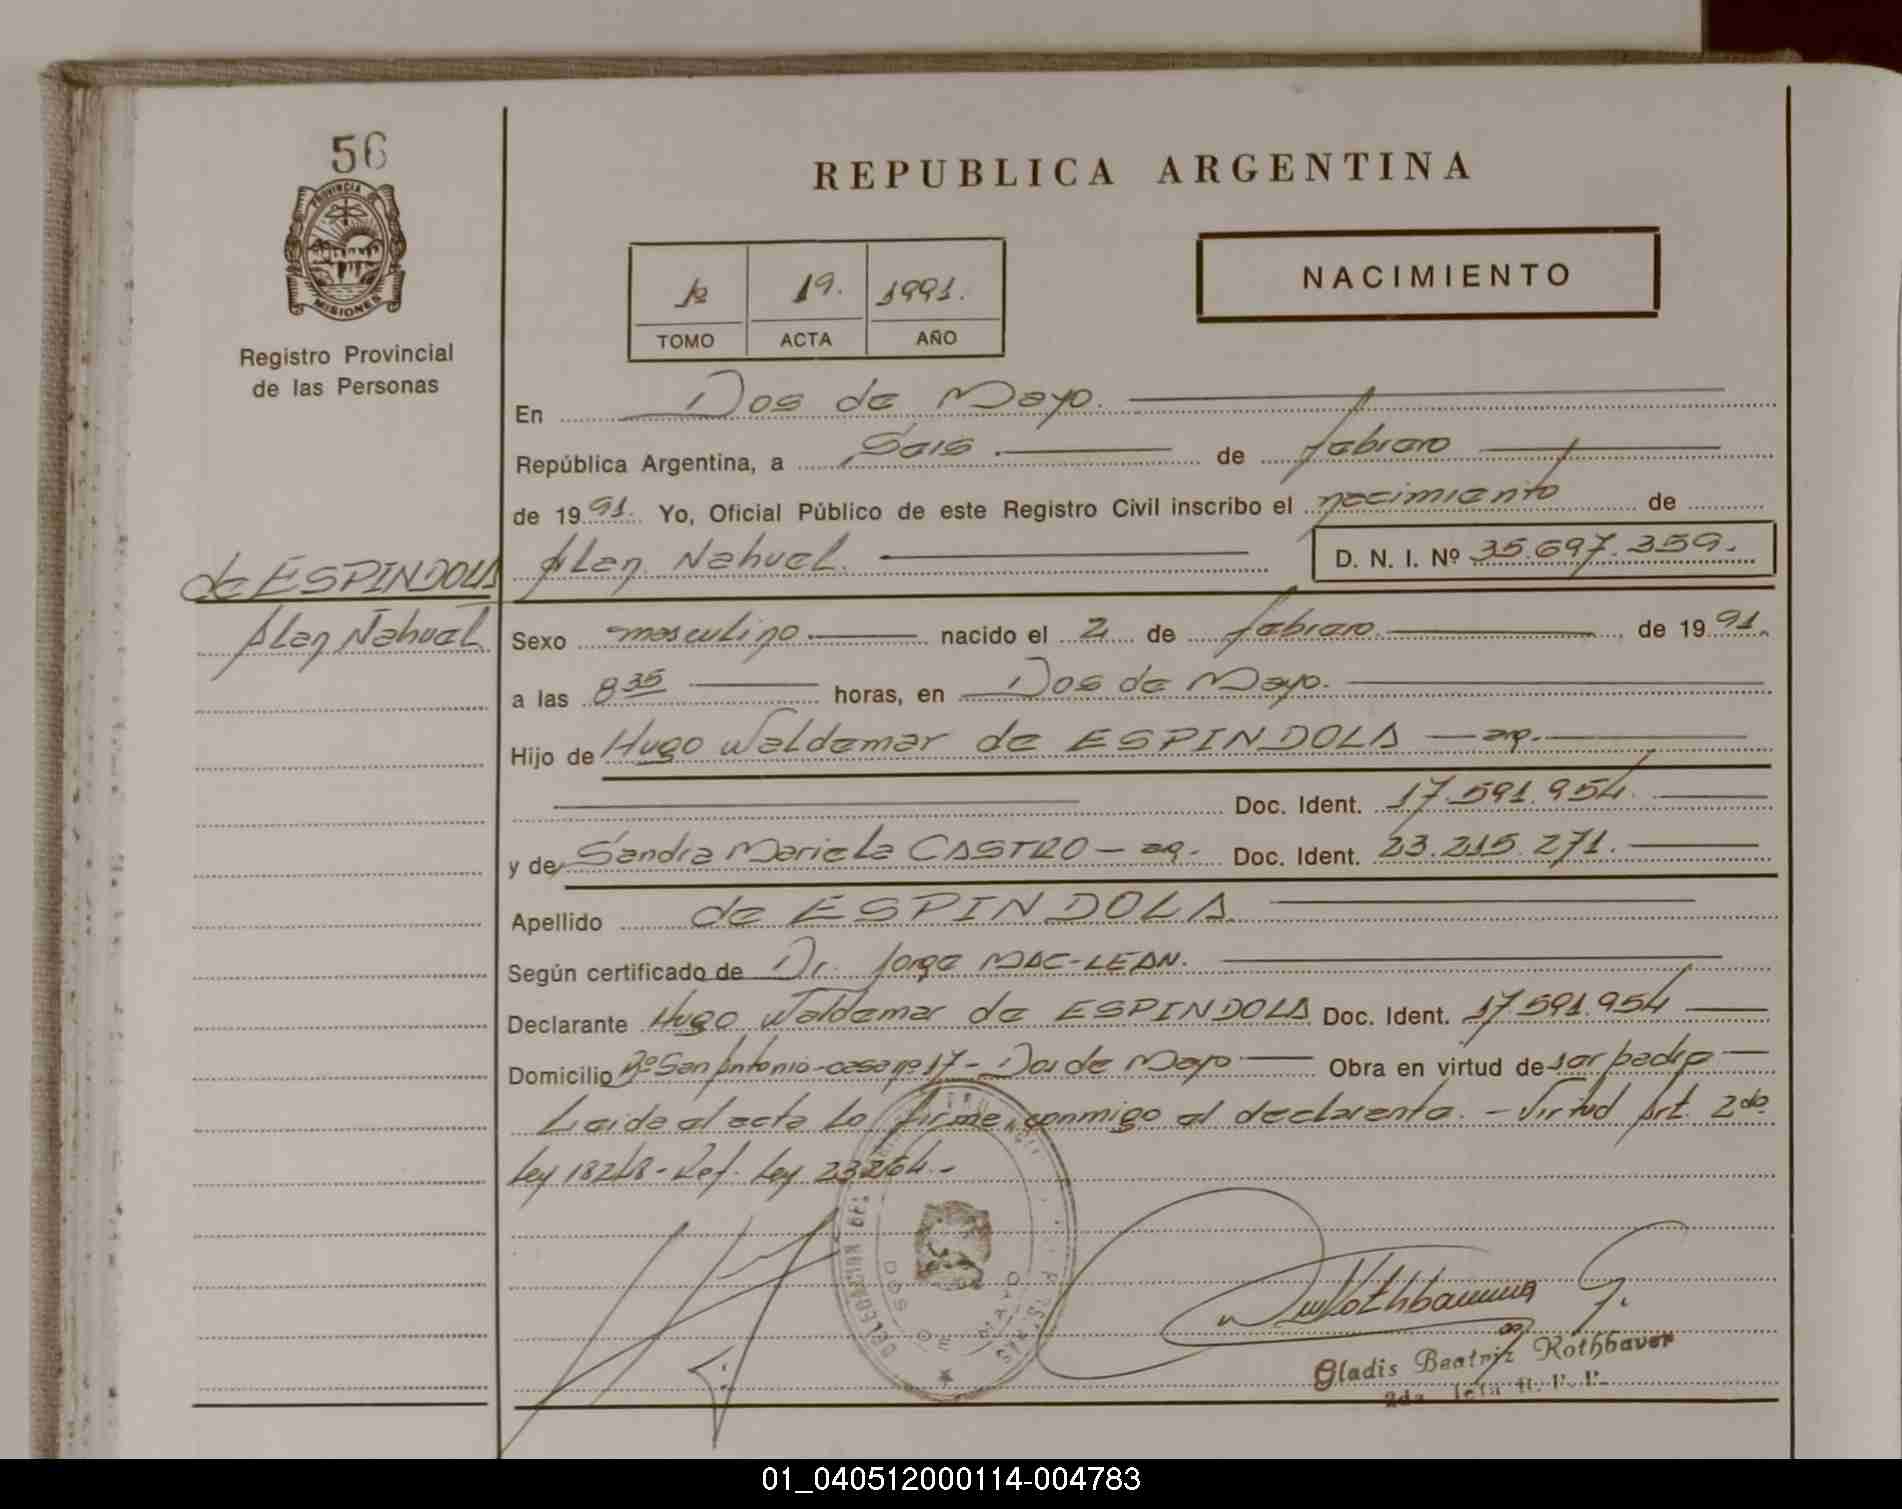 56
PROVINCIA
MISIONES
Registro Provincial
de las Personas
REPUBLICA ARGENTINA
1º 19. 1991.
TOMO ACTA AÑO
NACIMIENTO
En Dos de Mayo.
República Argentina, a Seis de febrero
de 1991. Yo, Oficial Público de este Registro Civil inscribo el nacimiento de
Alan Nahuel. D. N. I. Nº 35.697.359.
de ESPINDOLA
Alan Nahuel
Sexo masculino nacido el 2 de febrero de 1991.
a las 8 35 horas, en Dos de Mayo.
Hijo de Hugo Waldemar de ESPINDOLA — ar.
Doc. Ident. 17.591.954.
y de Sandra Mariela CASTRO — ar. Doc. Ident. 23.215.271.
Apellido de ESPINDOLA
Según certificado de Dr. Jorge MAC-LEAN.
Declarante Hugo Waldemar de ESPINDOLA Doc. Ident. 17.591.954
Domicilio Bº San Antonio - casa nº 17 - Dos de Mayo Obra en virtud de ser padre
Leida el acta la firma conmigo el declarante. - Virtud Art. 2do
Ley 18248 - Ref. Ley 23264. -
DELEGACION DEL
DOS DE MAYO
Rothbauer G.
Gladis Beatriz Rothbauer
2da. Jefa R. P. P.
01_040512000114-004783